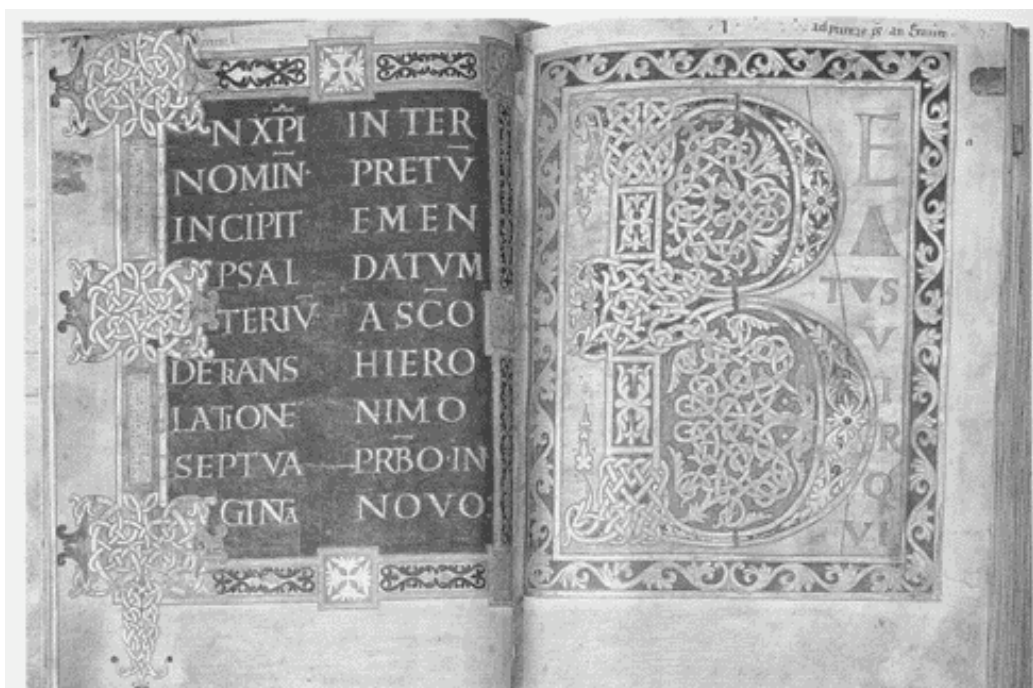 IN XP̅I
NOMIN̅·
INCIPIT
PSAL
TERIV̅
DE TRANS
LATiONE
SEPTVA
GINTA
IN TER
PRETV̅
EMEN
DATVM
A SC̅O
HIERO
NIMO
PRB̅O·IN
NOVO·
B
E
A
TVS
V
I
R
Q
VI